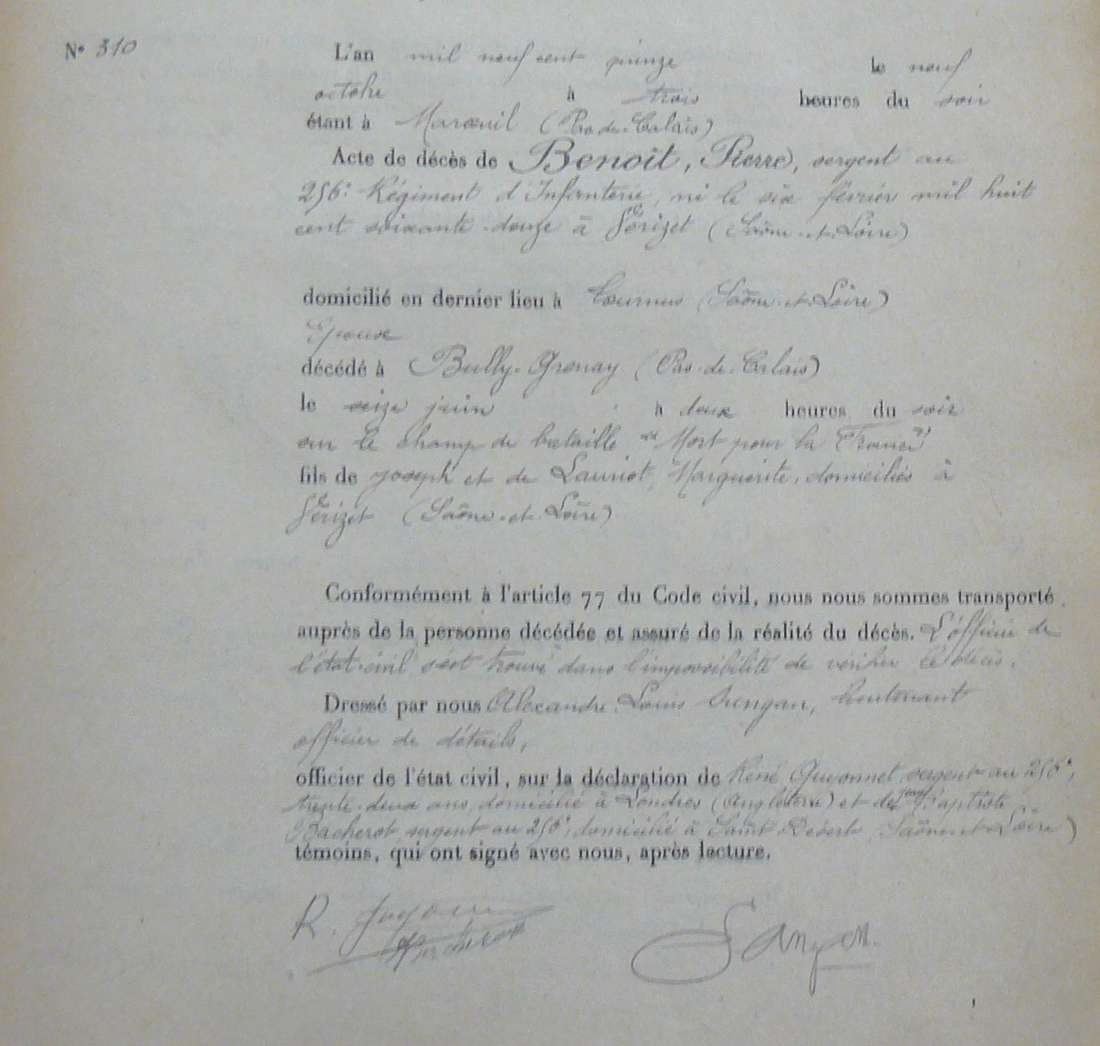 N° 310
L'an mil neuf cent quinze le neuf
octobre à trois heures du soir
étant à Maroeuil (Pas-de-Calais)
Acte de décès de Benoit, Pierre, sergent au
256e Régiment d'Infanterie, né le six février mil huit
cent soixante-douze à Vérizet (Saône-et-Loire)
domicilié en dernier lieu à Tournus (Saône-et-Loire)
Epoux
décédé à Bully-Grenay (Pas-de-Calais)
le seize juin à deux heures du soir
sur le champ de bataille "Mort pour la France"
fils de Joseph et de Lauriot, Marguerite, domiciliés à
Vérizet (Saône-et-Loire)
Conformément à l'article 77 du Code civil, nous nous sommes transporté
auprès de la personne décédée et assuré de la réalité du décès. L'officier de
l'état-civil s'est trouvé dans l'impossibilité de vérifier le décès.
Dressé par nous Alexandre Louis lieutenant
officier de détails,
officier de l'état civil, sur la déclaration de René sergent au 256e,
trente-deux ans, domicilié à Londres (Angleterre) et de Jean Baptiste
Bacherot sergent au 256e, domicilié à Saint (Saône-et-Loire)
témoins, qui ont signé avec nous, après lecture.
R.